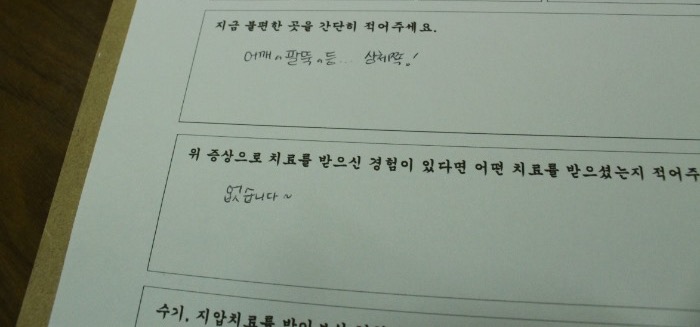 지금 불편한 곳을 간단히 적어주세요.
어깨, 팔뚝, 등... 상체쪽!
위 증상으로 치료를 받으신 경험이 있다면 어떤 치료를 받으셨는지 적어주
없습니다~
수기, 지압치료를 받아보신